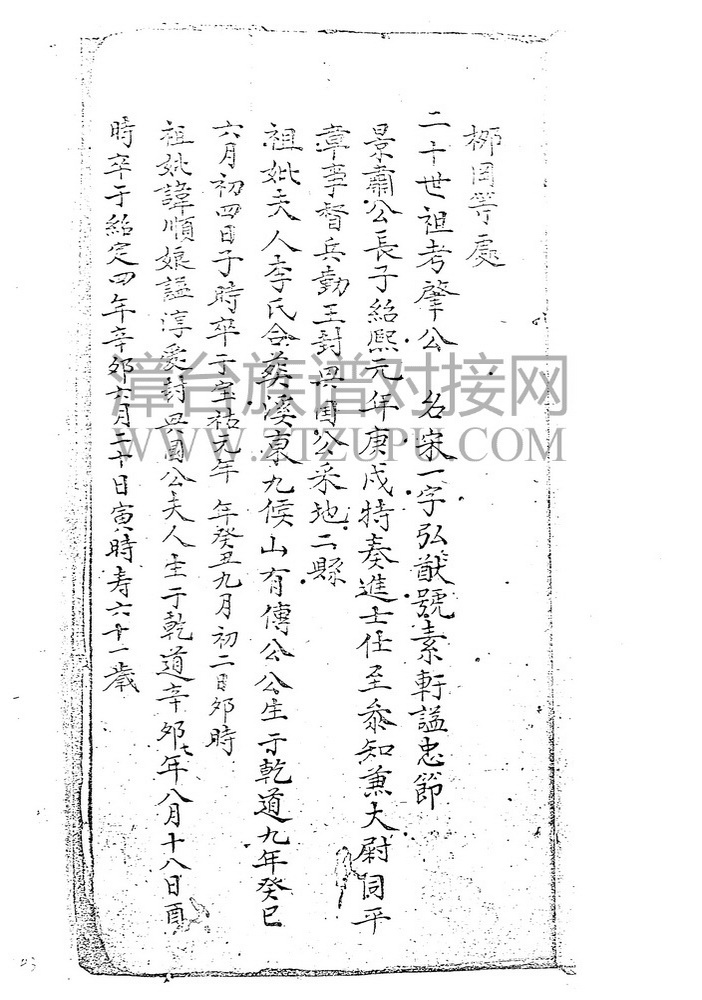 栁田等處
二十世祖考肇公 名宋一字弘猷號素軒謚忠節
景肅公長子紹熙元年庚戍特奏進士仕至叅知兼大尉同平
章事督兵勤王封興国公采地二縣
祖妣夫人李氏合葬溪東九候山有傳公公生于乾道九年癸巳
六月初四日子時卒于宝祜元年 年癸丑九月初二日夘時
祖妣諱順娘謚淳愛封興国公夫人生于乾道辛夘七年八月十八日酉
時卒于紹定四年辛夘六月二十日寅時寿六十一歲
漳台族谱对接网
WWW.ZTZUPU.COM